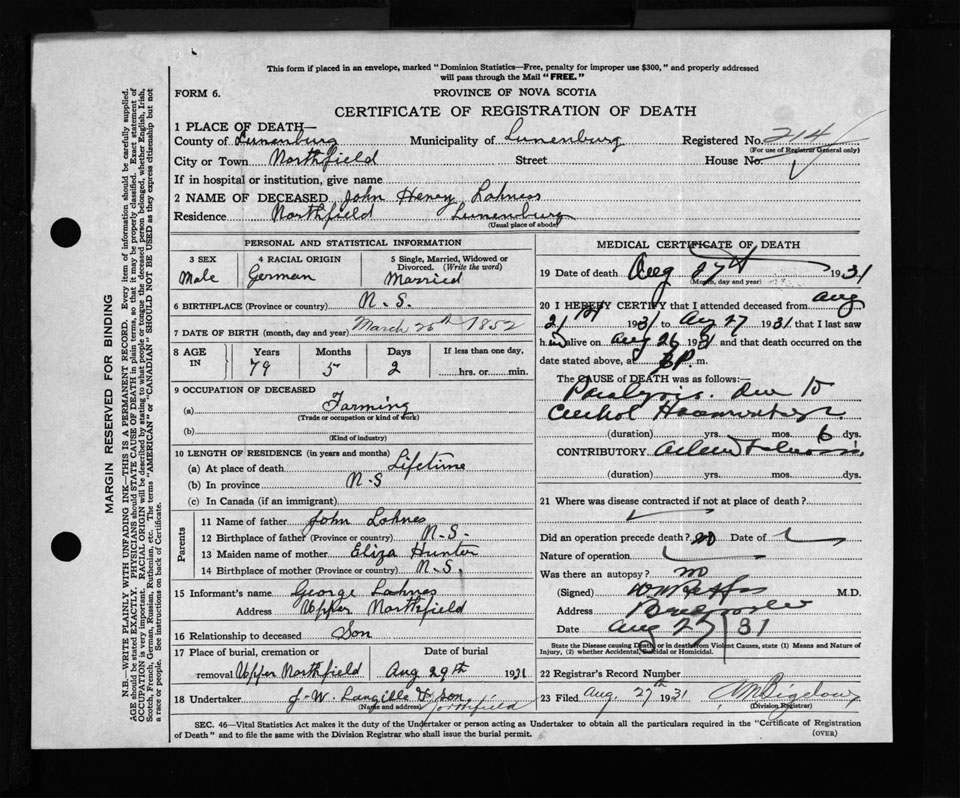 This form if placed in an envelope, marked "Dominion Statistics—Free, penalty for improper use $300," and properly addressed
will pass through the Mail "FREE."
FORM 6.
PROVINCE OF NOVA SCOTIA
CERTIFICATE OF REGISTRATION OF DEATH
1 PLACE OF DEATH—
County of Lunenburg Municipality of Lunenburg Registered No. 214
(For use of Registrar General only)
City or Town Northfield Street House No.
If in hospital or institution, give name
2 NAME OF DECEASED John Henry Lohness
Residence Northfield Lunenburg
(Usual place of abode)
PERSONAL AND STATISTICAL INFORMATION
3 SEX 4 RACIAL ORIGIN 5 Single, Married, Widowed or
Divorced. (Write the word)
Male German Married
6 BIRTHPLACE (Province or country) N.S.
7 DATE OF BIRTH (month, day and year) March 25th 1852
8 AGE IN Years Months Days If less than one day,
79 5 2 hrs. or min.
9 OCCUPATION OF DECEASED
(a) Farming
(Trade or occupation or kind of work)
(b)
(Kind of industry)
10 LENGTH OF RESIDENCE (in years and months)
(a) At place of death Lifetime
(b) In province N.S
(c) In Canada (if an immigrant)
Parents
11 Name of father John Lohnes
12 Birthplace of father (Province or country) N.S.
13 Maiden name of mother Eliza Hunter
14 Birthplace of mother (Province or country) N.S.
15 Informant's name George Lohnes
Address Upper Northfield
16 Relationship to deceased Son
17 Place of burial, cremation or Date of burial
removal Upper Northfield Aug 29th 1931
18 Undertaker J. W. Langille & Son
(Name and address) Northfield
MEDICAL CERTIFICATE OF DEATH
19 Date of death Aug 27th 1931
(Month, day and year)
20 I HEREBY CERTIFY that I attended deceased from Aug
21st 1931 to Aug 27 1931 that I last saw
him alive on Aug 26 1931 and that death occurred on the
date stated above, at P. m.
The CAUSE of DEATH was as follows:—
Paralysis. Due to
Hemorrhage
(duration) yrs. mos. 6 dys.
CONTRIBUTORY
(duration) yrs. mos. dys.
21 Where was disease contracted if not at place of death?
Did an operation precede death? no Date of
Nature of operation
Was there an autopsy? no
(Signed) M.D.
Address Bridgewater
Date Aug 27/31
State the Disease causing Death, or in deaths from Violent Causes, state (1) Means and Nature of
Injury, (2) whether Accidental, Suicidal or Homicidal.
22 Registrar's Record Number
23 Filed Aug. 27th 1931 Bigelow
(Division Registrar)
SEC. 46—Vital Statistics Act makes it the duty of the Undertaker or person acting as Undertaker to obtain all the particulars required in the "Certificate of Registration
of Death" and to file the same with the Division Registrar who shall issue the burial permit. (OVER)
MARGIN RESERVED FOR BINDING
N.B.—WRITE PLAINLY WITH UNFADING INK—THIS IS A PERMANENT RECORD. Every item of information should be carefully supplied.
AGE should be stated EXACTLY. PHYSICIANS should STATE CAUSE OF DEATH in plain terms, so that it may be properly classified. Exact statement of
OCCUPATION is very important. RACIAL ORIGIN will be described by stating to what people or tongue the deceased person belonged, whether English, Irish,
Scotch, French, German, Russian, Ruthenian, etc. The terms "AMERICAN" or "CANADIAN" SHOULD NOT BE USED as they express citizenship but not
a race or people. See instructions on back of Certificate.